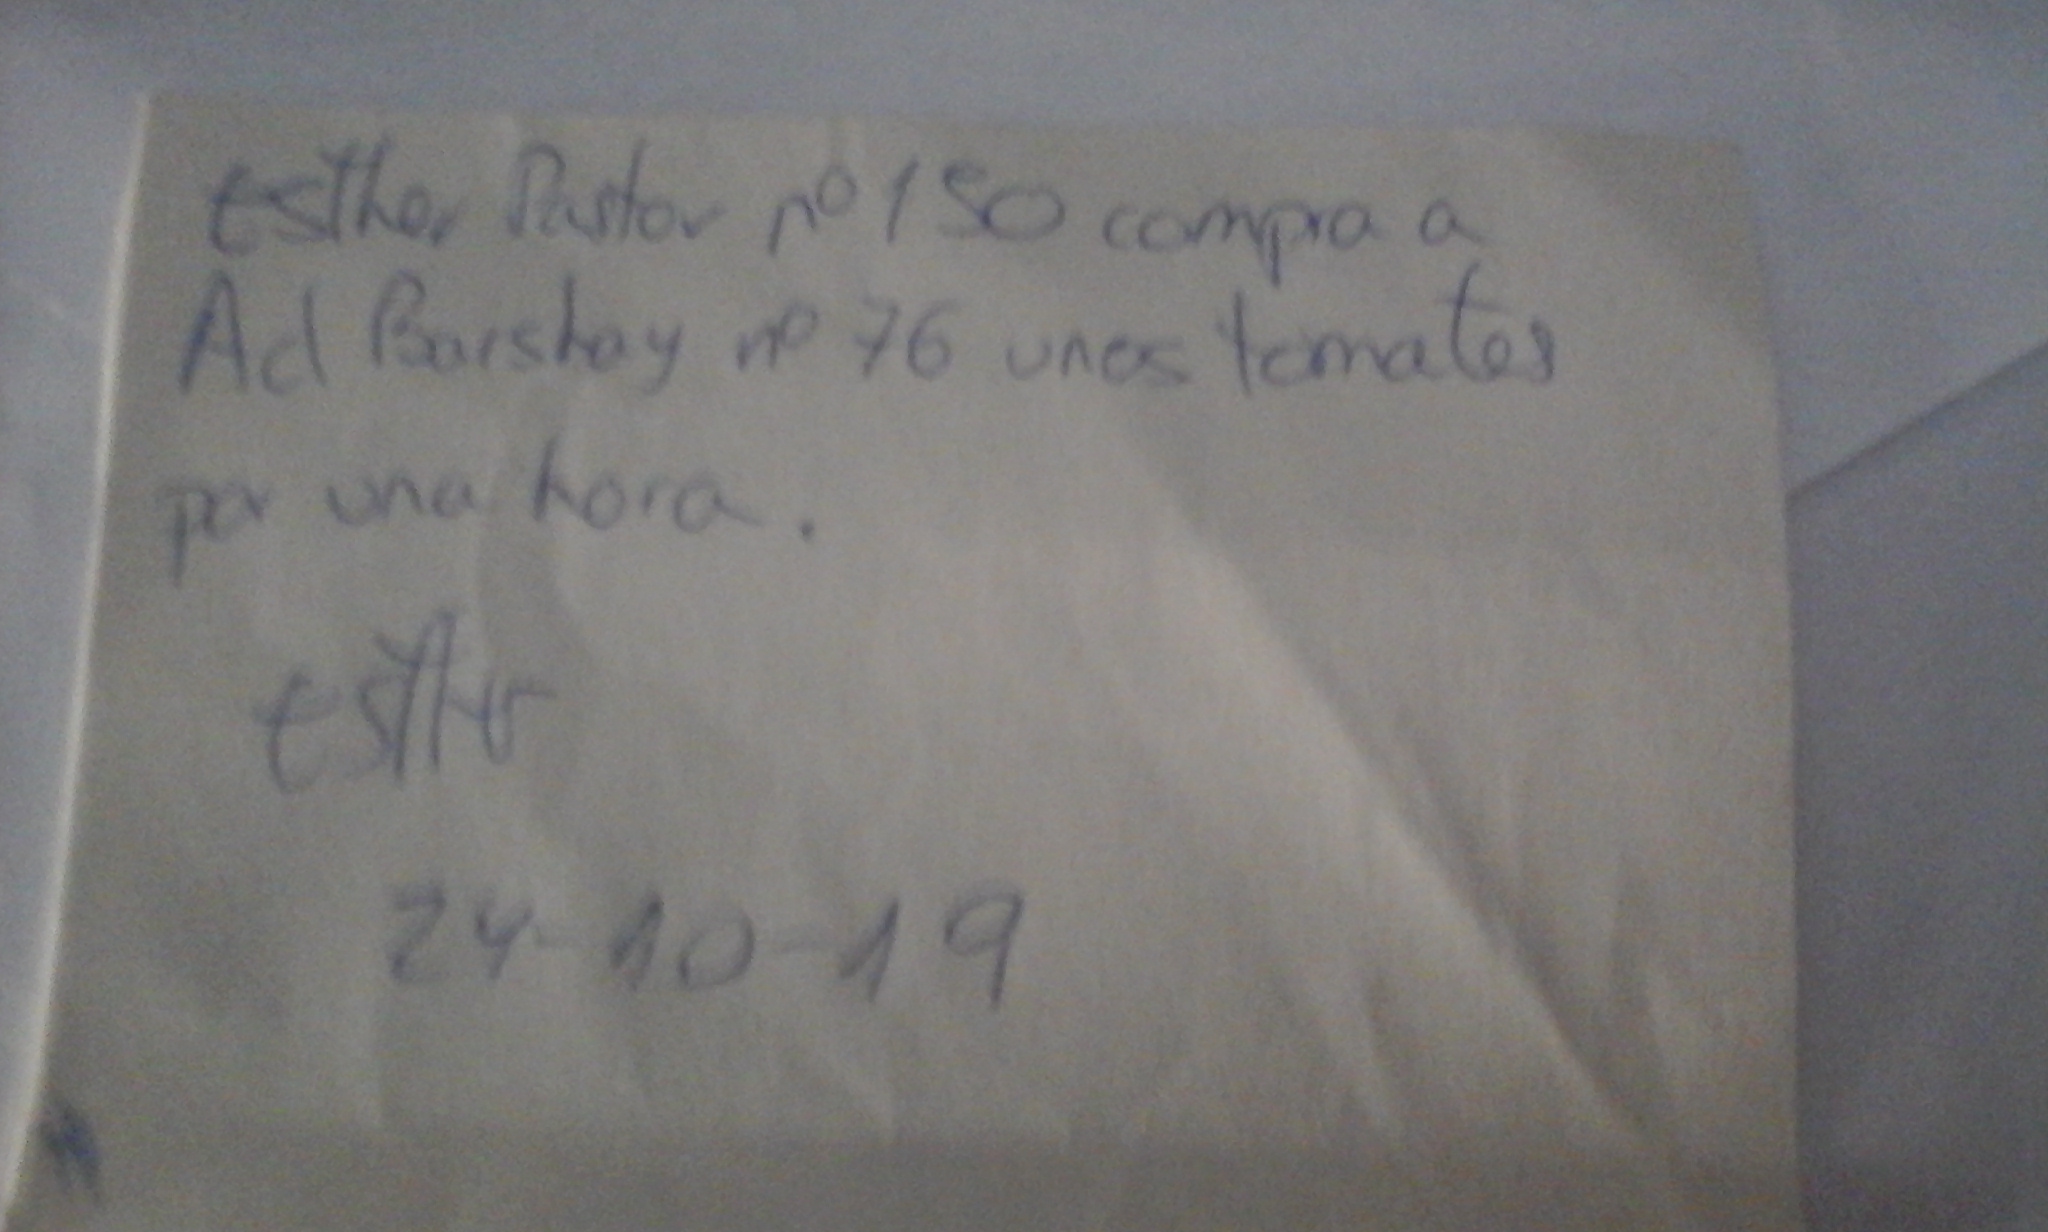 Esther Pastor nº 150 compra a
Ad Barshay nº 76 unos tomates
por una hora.
Esther
24-10-19